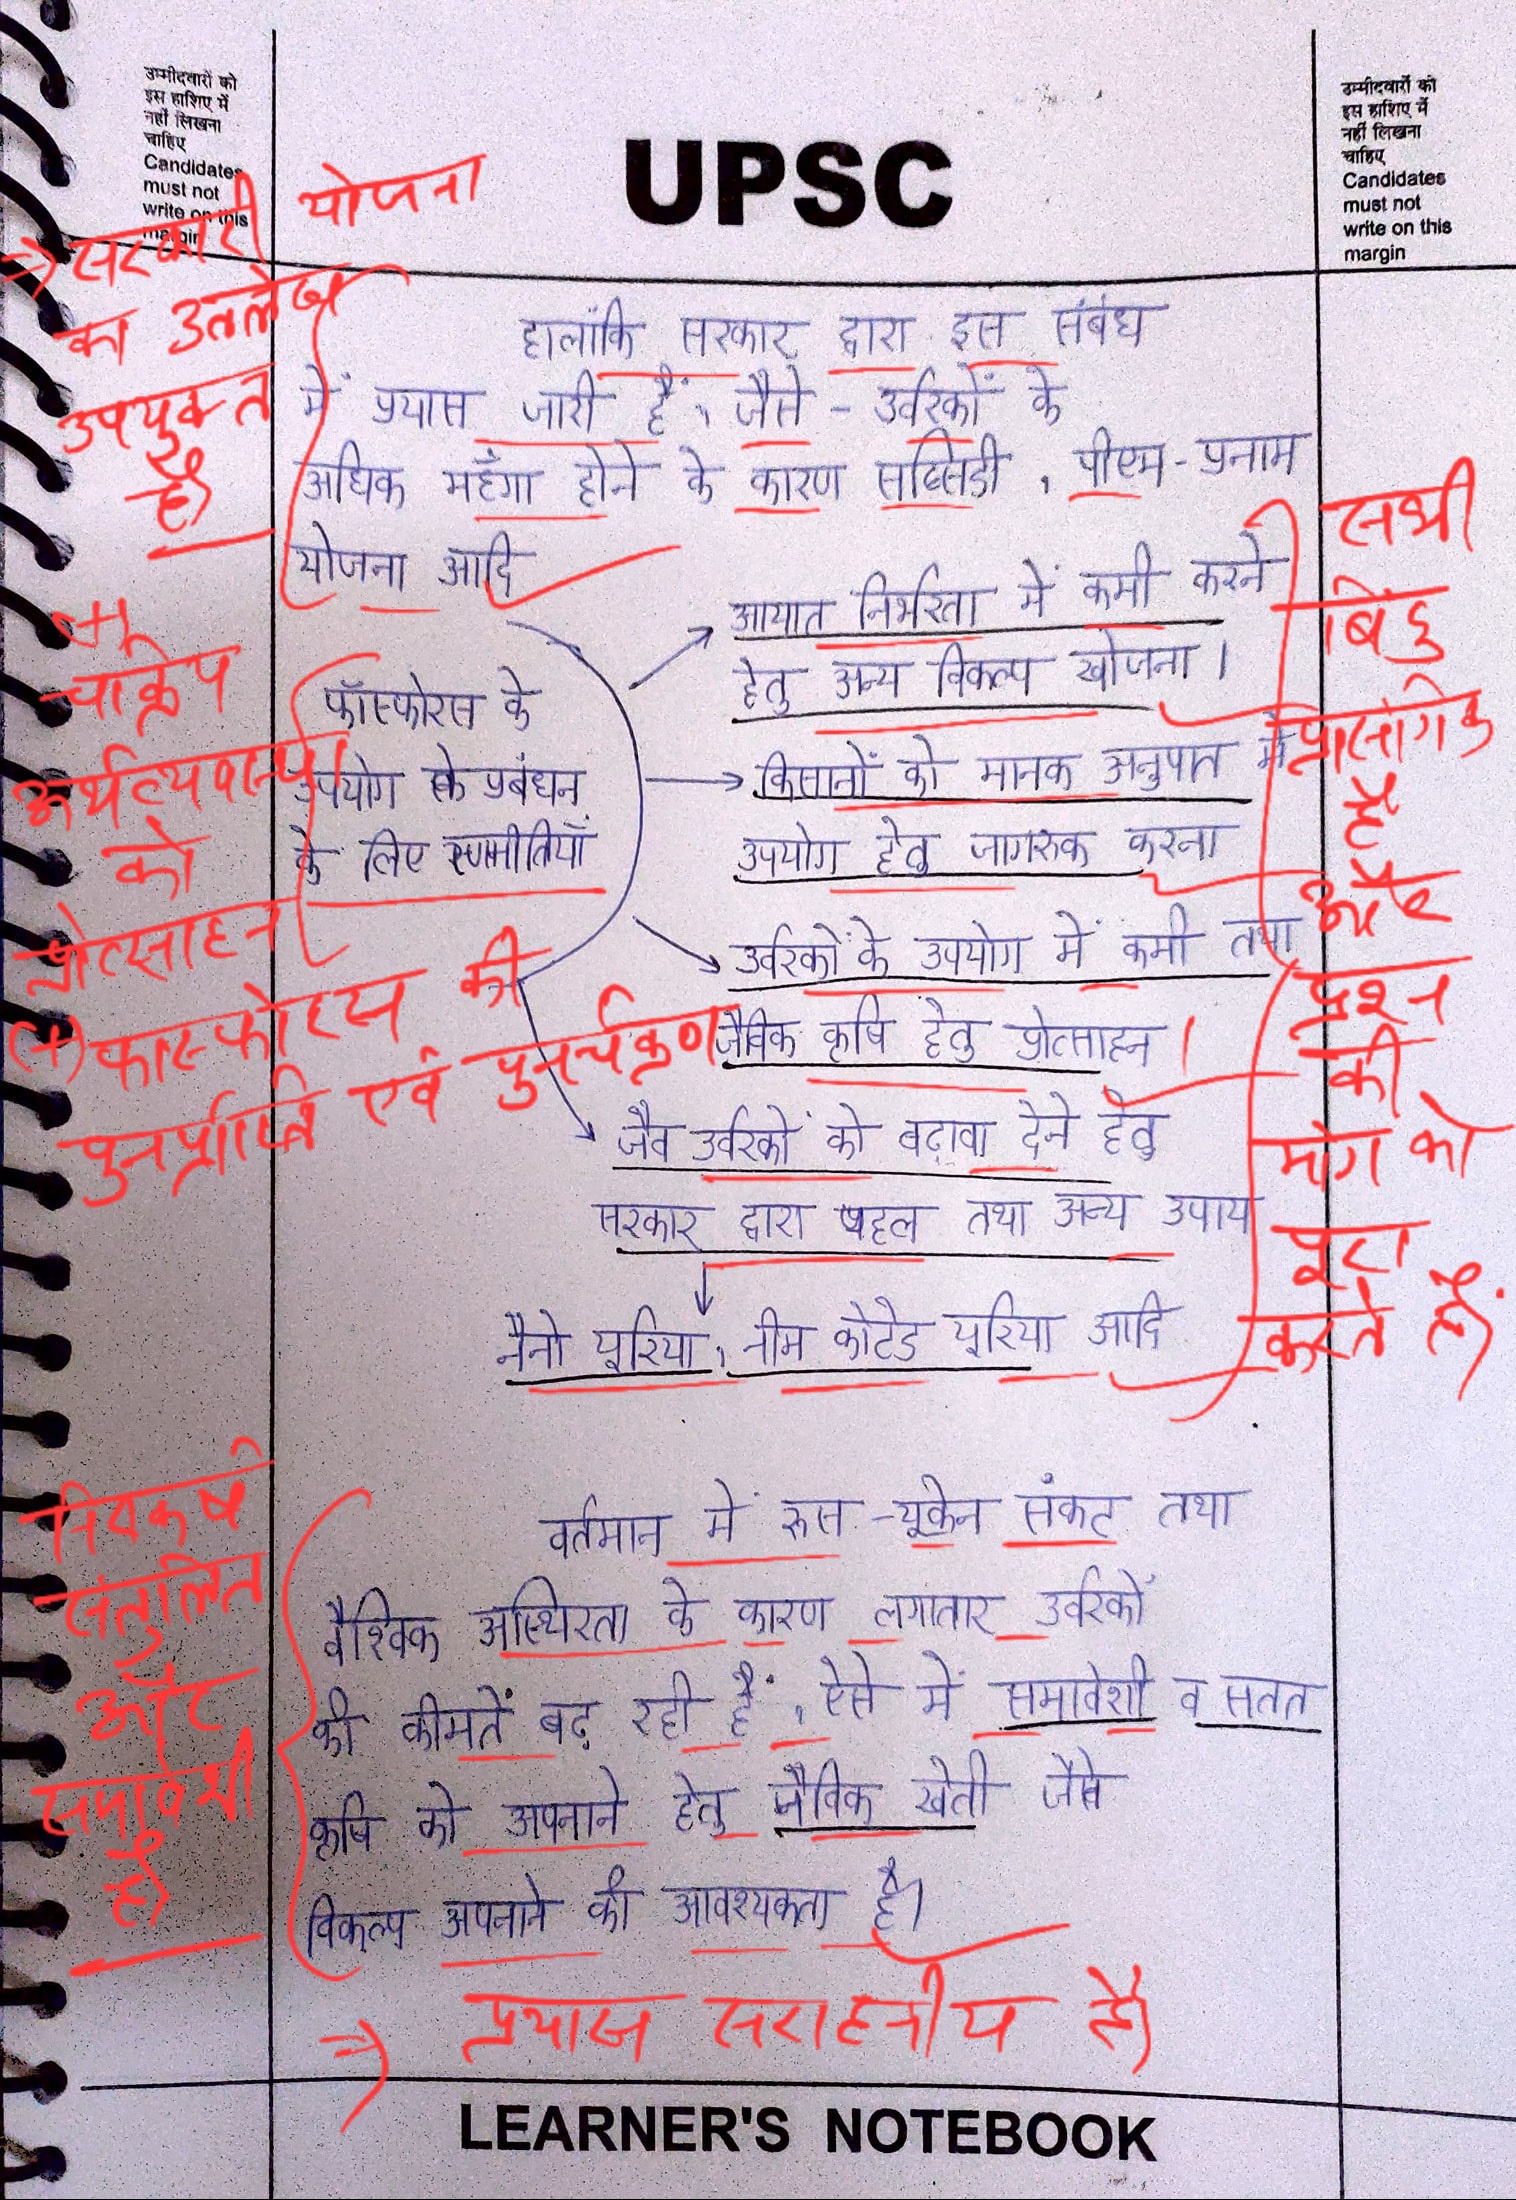 उम्मीदवारों को
इस हाशिए में
नहीं लिखना
चाहिए
Candidates
must not
write on this
margin
UPSC
उम्मीदवारों को
इस हाशिए में
नहीं लिखना
चाहिए
Candidates
must not
write on this
margin
⇒ सरकारी योजना
का उल्लेख
उपयुक्त
है।
हालांकि सरकार द्वारा इस संबंध
में प्रयास जारी हैं, जैसे - उर्वरकों के
अधिक महँगा होने के कारण सब्सिडी, पीएम-प्रनाम
योजना आदि
फॉस्फोरस के
उपयोग के प्रबंधन
के लिए रणनीतियाँ
आयात निर्भरता में कमी करने
हेतु अन्य विकल्प खोजना।
किसानों को मानक अनुपात में
उपयोग हेतु जागरुक करना
उर्वरकों के उपयोग में कमी तथा
जैविक कृषि हेतु प्रोत्साहन।
जैव उर्वरकों को बढ़ावा देने हेतु
सरकार द्वारा पहल तथा अन्य उपाय
नैनो यूरिया, नीम कोटेड यूरिया आदि
चक्रिय
अर्थव्यवस्था
को
प्रोत्साहन
(+) फास्फोरस की
पुनर्प्राप्ति एवं पुनर्चक्रण
सभी
बिंदु
प्रासंगिक
हैं
और
प्रश्न
की
मांग को
पूरा
करते हैं।
निष्कर्ष
संतुलित
और
समावेशी
है।
वर्तमान में रूस-यूक्रेन संकट तथा
वैश्विक अस्थिरता के कारण लगातार उर्वरकों
की कीमतें बढ़ रही हैं, ऐसे में समावेशी व सतत
कृषि को अपनाने हेतु जैविक खेती जैसे
विकल्प अपनाने की आवश्यकता है।
⇒ प्रयास सराहनीय है।
LEARNER'S NOTEBOOK